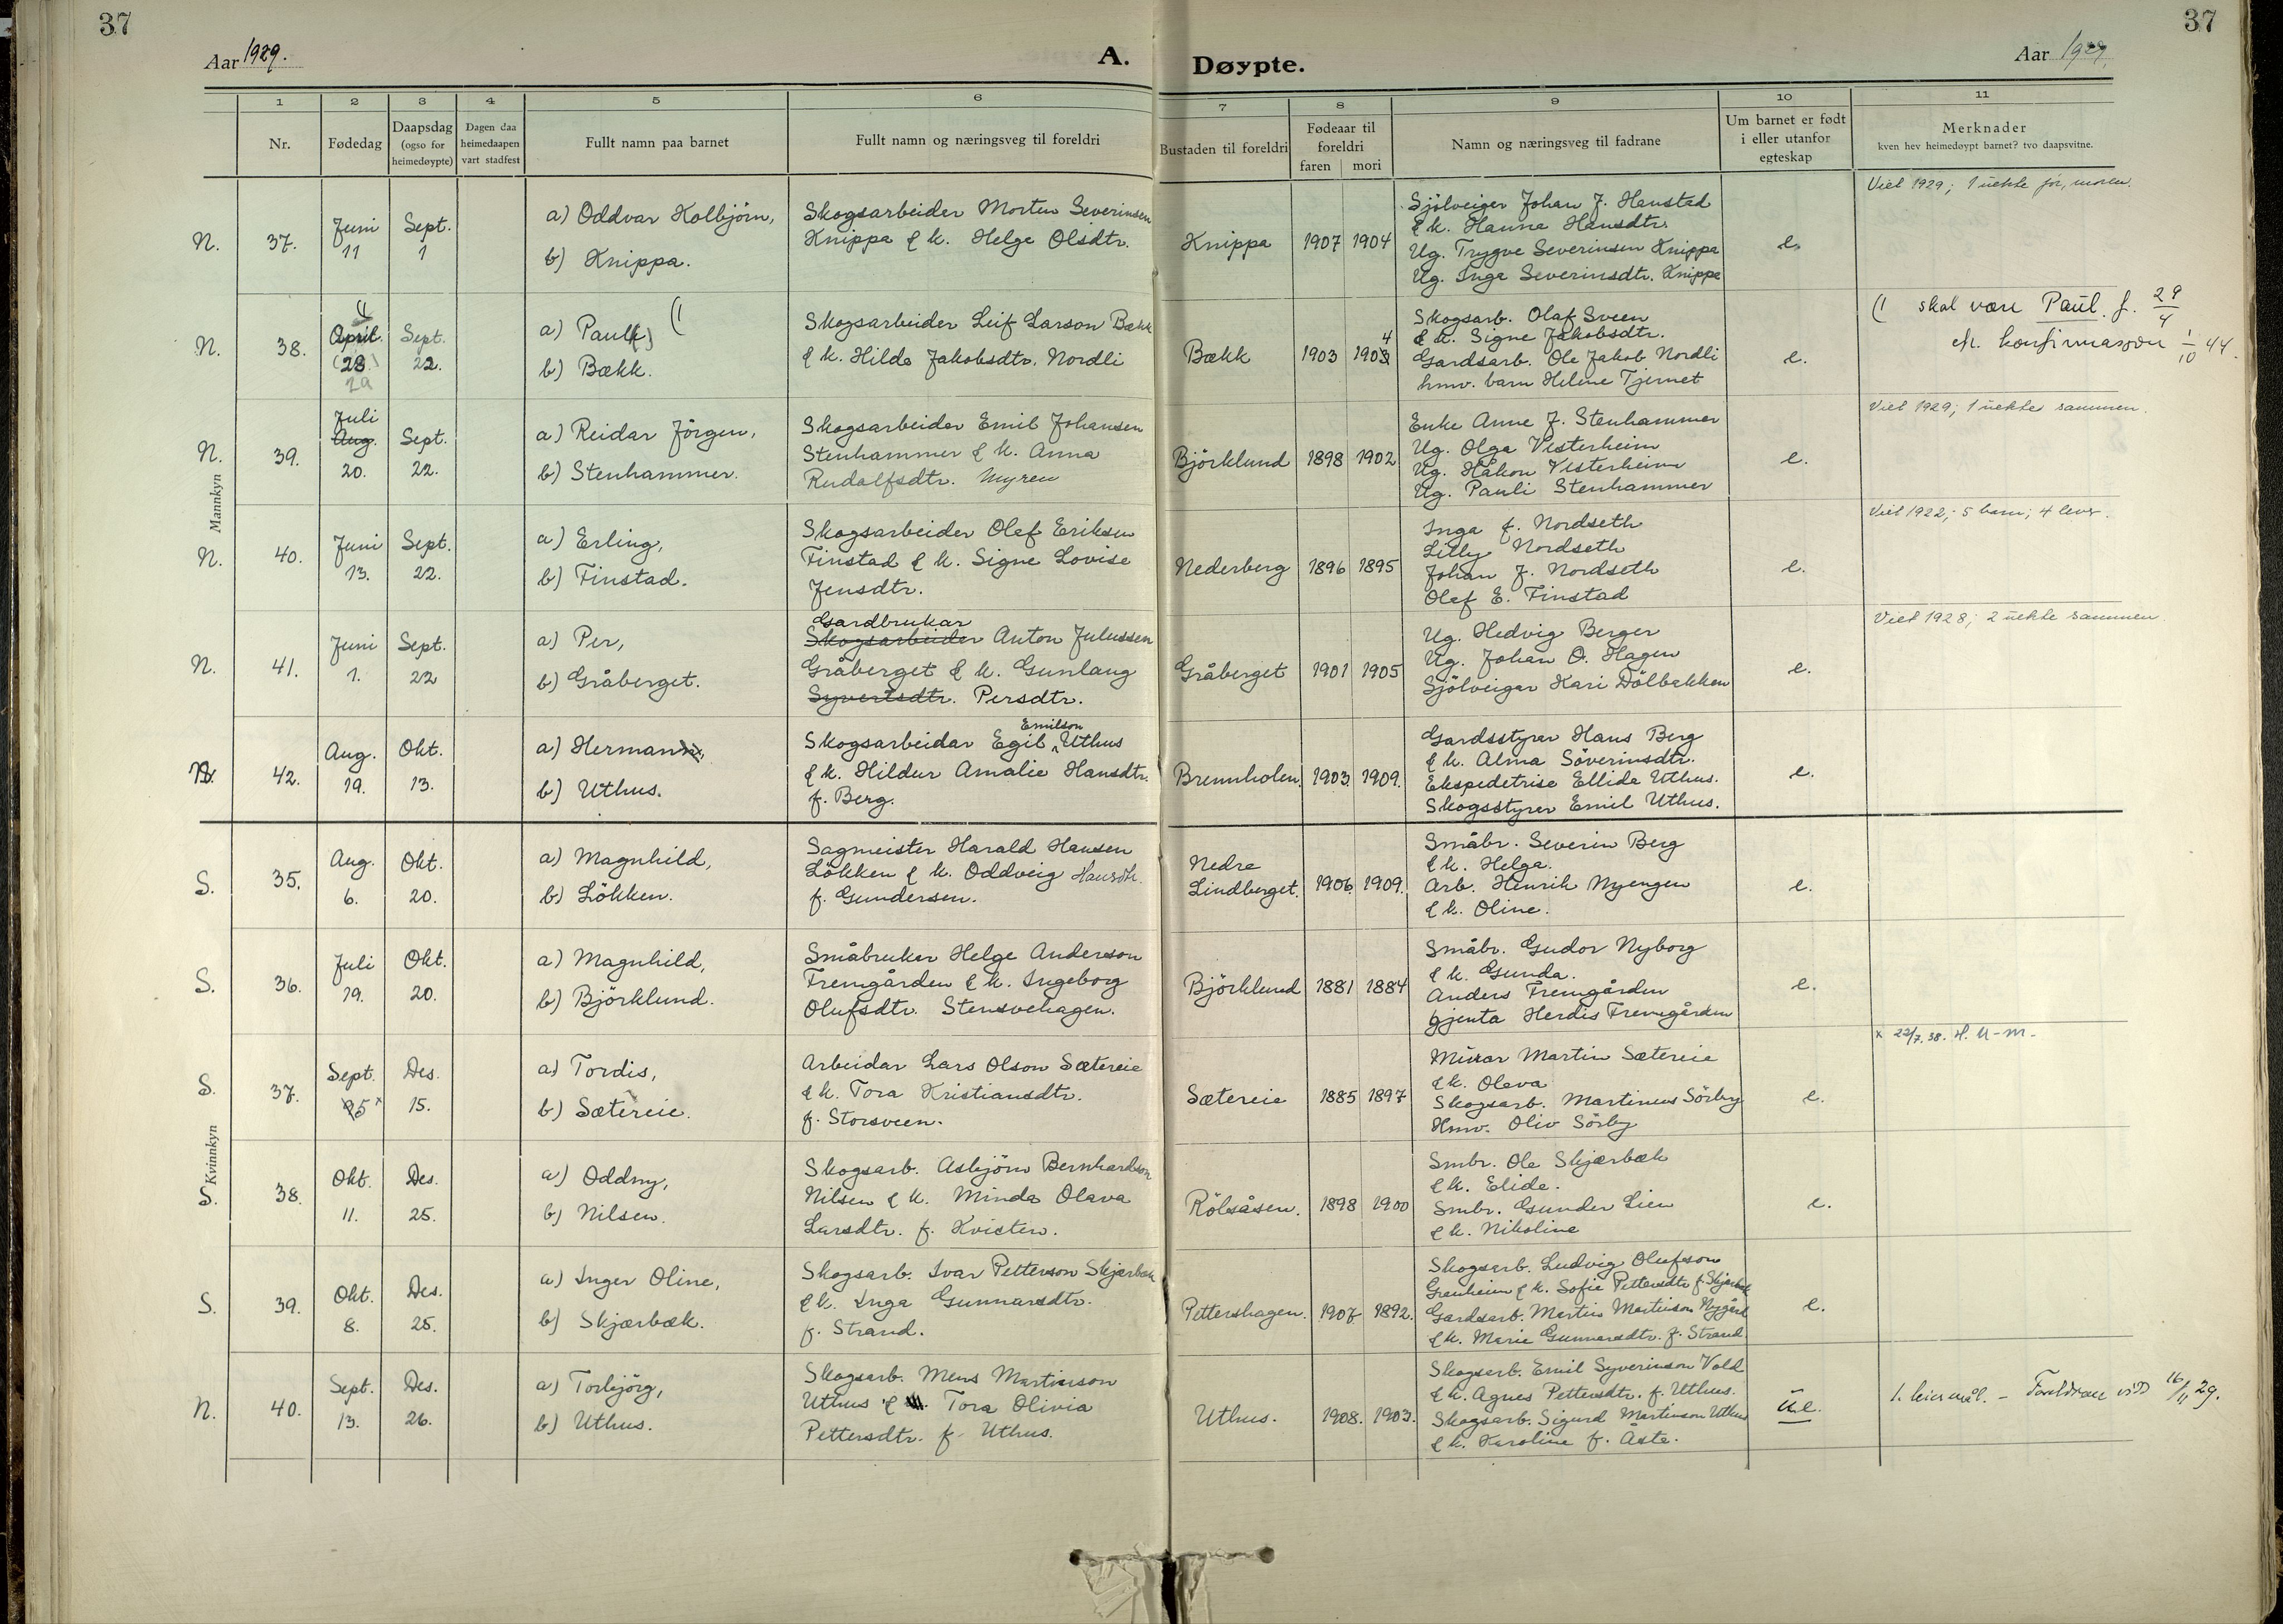 37
37
Aar 1929.
A.
Døypte.
Aar 1929.
1
2
3
4
5
6
7
8
9
10
11
Nr.
Fødedag
Daapsdag
(ogso for
heimedøypte)
Dagen daa
heimedaapen
vart stadfest
Fullt namn paa barnet
Fullt namn og næringsveg til foreldri
Bustaden til foreldri
Fødeaar til
foreldri
faren
mori
Namn og næringsveg til fadrane
Um barnet er født
i eller utanfor
egteskap
Merknader
kven hev heimedøypt barnet? tvo daapsvitne.
Mannkyn
N.
37.
Juni
11
Sept.
1
a) Oddvar Kolbjörn,
b) Knippa.
Skogsarbeider Morten Severinsen
Knippa & k. Helge Olsdtr.
Knippa
1907
1904
Sjölveiger Johan J. Hanstad
& k. Hanna Hansdtr.
Ug. Trygve Severinsen Knippa
Ug. Inga Severinsdtr. Knippa
e.
Viet 1929; 1 uekte før, moren.
N.
38.
(1
April.
(28.)
29
Sept.
22.
a) Paul(k) (1
b) Bækk.
Skogsarbeider Leif Larson Bækk
& k. Hilda Jakobsdtr. Nordli
Bækk
1903
4
1903
Skogsarb. Olaf Sveen
& k. Signe Jakobsdtr.
Gardsarb. Ole Jakob Nordli
hmv. barn Helene Tjernet
e.
(1 skal være Paul. f. 29/4
eft. konfirmasjon 1/10 44.
N.
39.
Juli
Aug.
20.
Sept.
22.
a) Reidar Jörgen,
b) Stenhammer.
Skogsarbeider Emil Johansen
Stenhammer & k. Anna
Rudolfsdtr. Myren
Björklund
1898
1902
Enke Anne J. Stenhammer
Ug. Olga Vesterheim
Ug. Håkon Vesterheim
Ug. Pauli Stenhammer
e.
Viet 1929; 1 uekte sammen.
N.
40.
Juni
13.
Sept.
22.
a) Erling,
b) Finstad.
Skogsarbeider Olef Eriksen
Finstad & k. Signe Lovise
Jensdtr.
Nederberg
1896
1895
Inga f. Nordseth
Lilly Nordseth
Johan J. Nordseth
Olef E. Finstad
e.
Viet 1922; 5 barn; 4 lever.
N.
41.
Juni
1.
Sept.
22
a) Per,
b) Gråberget.
Gardbrukar
Skogsarbeider Anton Julussen
Gråberget & k. Gunlaug
Syvertsdtr. Persdtr.
Gråberget
1901
1905
Ug. Hedvig Berger
Ug. Johan O. Hagen
Sjölveigar Kari Dölbakken
e.
Viet 1928; 2 uekte sammen
N.
42.
Aug.
19.
Okt.
13.
a) Hermann,
b) Uthus.
Emilson
Skogsarbeidar Egil Uthus
& k. Hildur Amalie Hansdtr.
f. Berg.
Brennholen.
1903.
1909.
Gardsstyrer Hans Berg
& k. Alma Söverinsdtr.
Ekspedetrise Ellida Uthus.
Skogsstyrer Emil Uthus.
e.
Kvinnkyn
S.
35.
Aug.
6.
Okt.
20.
a) Magnhild,
b) Lökken.
Sagmeister Harald Hansen
Lökken & k. Oddveig Hansdtr.
f. Gundersen.
Nedre
Lindberget.
1906.
1909.
Småbr. Severin Berg
& k. Helga.
Arb. Henrik Nyengen
& k. Oline.
e.
S.
36.
Juli
19.
Okt.
20.
a) Magnhild,
b) Björklund.
Småbruker Helge Anderson
Fremgården & k. Ingeborg
Olufsdtr. Stensvehagen.
Björklund
1881
1884
Småbr. Gudor Nyborg
& k. Gunda.
Anders Fremgården
gjenta Herdis Fremgården
e.
S.
37.
Sept.
25 x
Des.
15.
a) Tordis,
b) Sætereie.
Arbeidar Lars Olson Sætereie
& k. Tora Kristiansdtr.
f. Storsveen.
Sætereie
1885
1897
Murar Martin Sætereie
& k. Oleva
Skogsarb. Martineus Sörby
Hmv. Oliv Sörby
e.
x 22/7.38. H. U-M-
S.
38.
Okt.
11.
Des.
25.
a) Oddny,
b) Nilsen.
Skogsarb. Asbjörn Bernhardson
Nilsen & k. Minda Olava
Larsdtr. f. Kvisten.
Rölsåsen.
1898
1900
Smbr. Ole Skjærbæk
& k. Elida.
Smbr. Gunder Lien
& k. Nikoline
e.
S.
39.
Okt.
8.
Des.
25.
a) Inger Oline,
b) Skjærbæk.
Skogsarb. Ivar Petterson Skjærbæk
& k. Inga Gunnarsdtr.
f. Strand.
Pettershagen.
1907
1892.
Skogsarb. Ludvig Olufsson
Grenheim & k. Sofie Pettersdtr. f. Skjærbæk
Gardsarb. Martin Martinson Nygård
& k. Marie Gunnarsdtr. f. Strand
e.
N.
40.
Sept.
13.
Des.
26.
a) Torbjörg,
b) Uthus.
Skogsarb. Mens Martinson
Uthus & Tora Olivia
Pettersdtr. f. Uthus.
Uthus.
1908.
1903.
Skogsarb. Emil Syverinson Vold
& k. Agnes Pettersdtr. f. Uthus.
Skogsarb. Sigurd Martinson Uthus
& k. Karoline f. Åsta.
u.e.
1. leiermål. - Foreldrene viet 16/11 29.